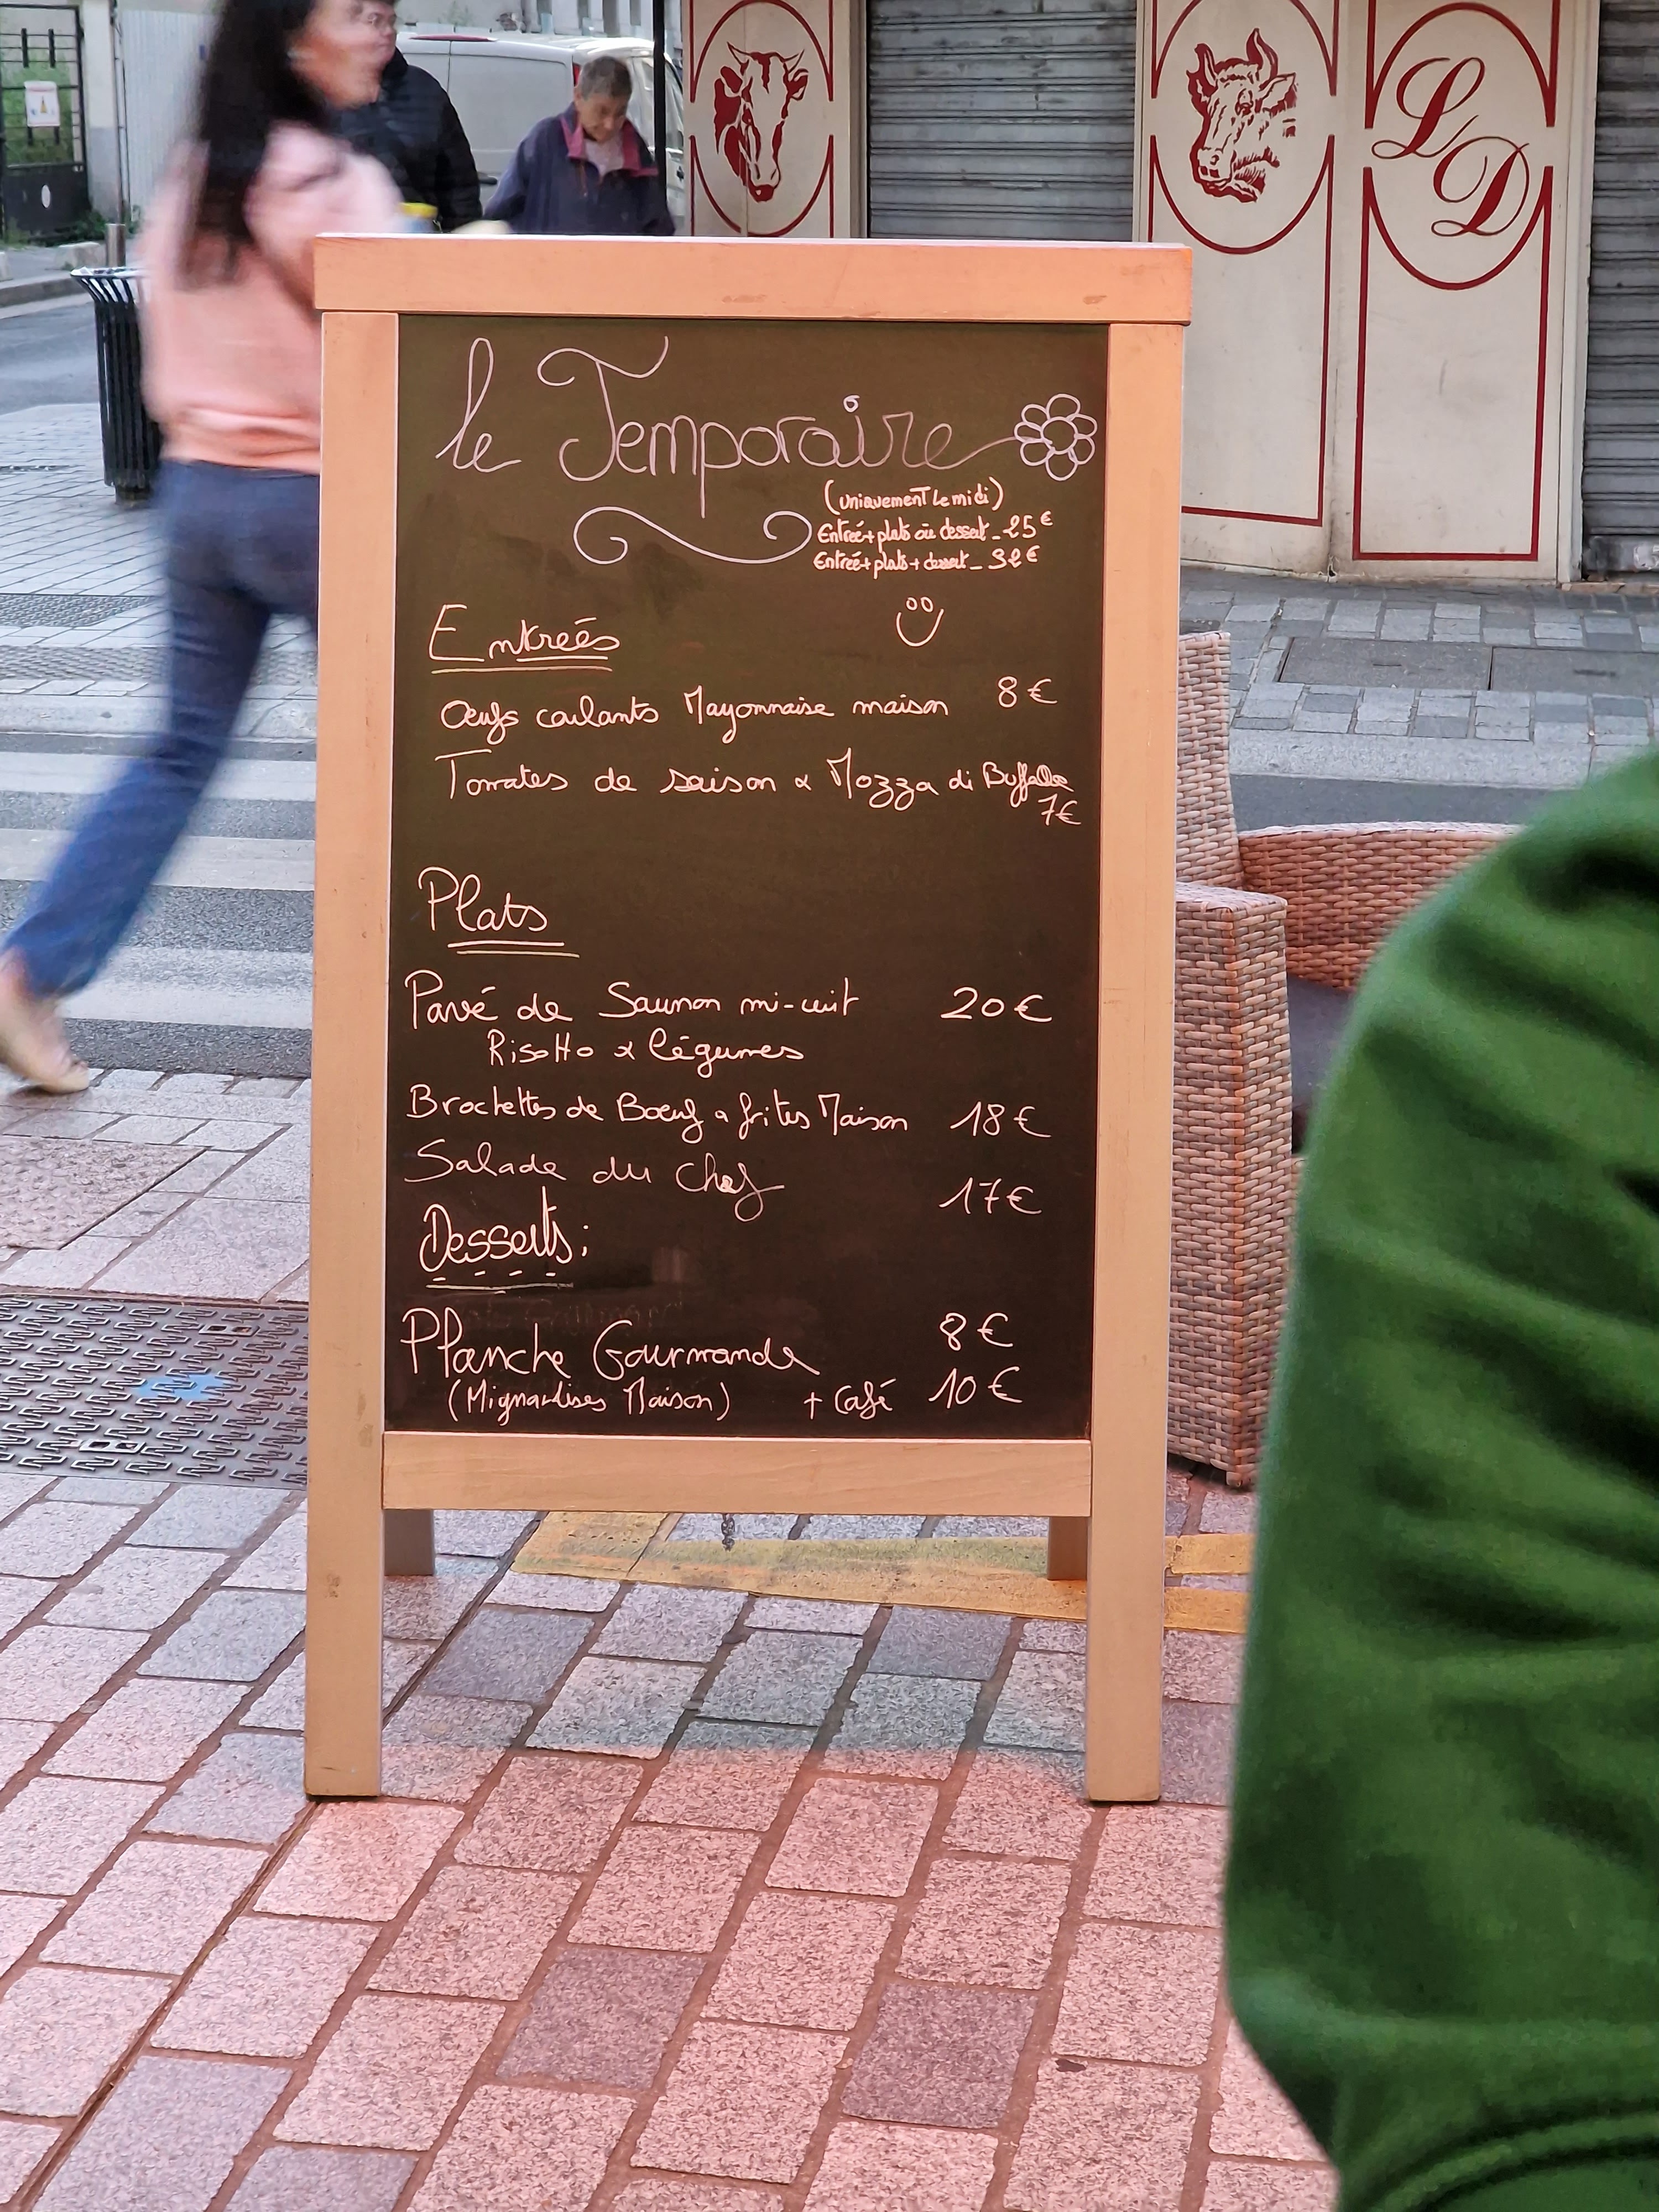 le Temporaire
(uniquement le midi)
Entrée + plats ou dessert _ 25€
Entrée + plats + dessert _ 32€
Entreés
Œufs coulants Mayonnaise maison 8€
Tomates de saison & Mozza di Buffala
7€
Plats
Pavé de Saumon mi-cuit 20€
Risotto & légumes
Brochettes de Bœuf & frites Maison 18€
Salade du chef 17€
Desserts;
Planche Gourmande 8€
(Mignardises Maison) + Café 10€
LD